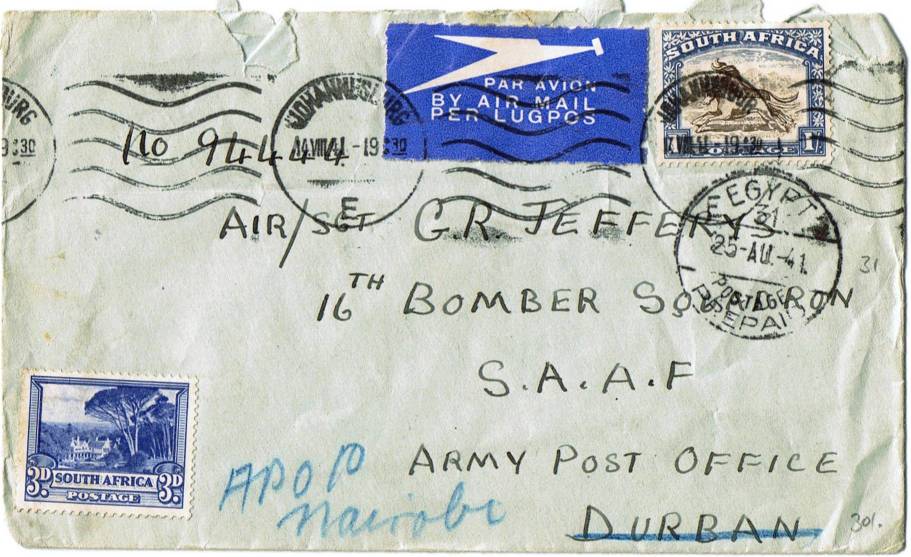 SOUTH AFRICA
1/-
PAR AVION
BY AIR MAIL
PER LUGPOS
JOHANNESBURG
-19:30
E
No 94444
AIR/SGT G.R. JEFFERYS
EGYPT
31
25-AU.-41
POSTAGE
PREPAID
31
16TH BOMBER SQUADRON
S.A.A.F
3D SOUTH AFRICA 3D
POSTAGE
APO P
Nairobi
ARMY POST OFFICE
DURBAN
301.